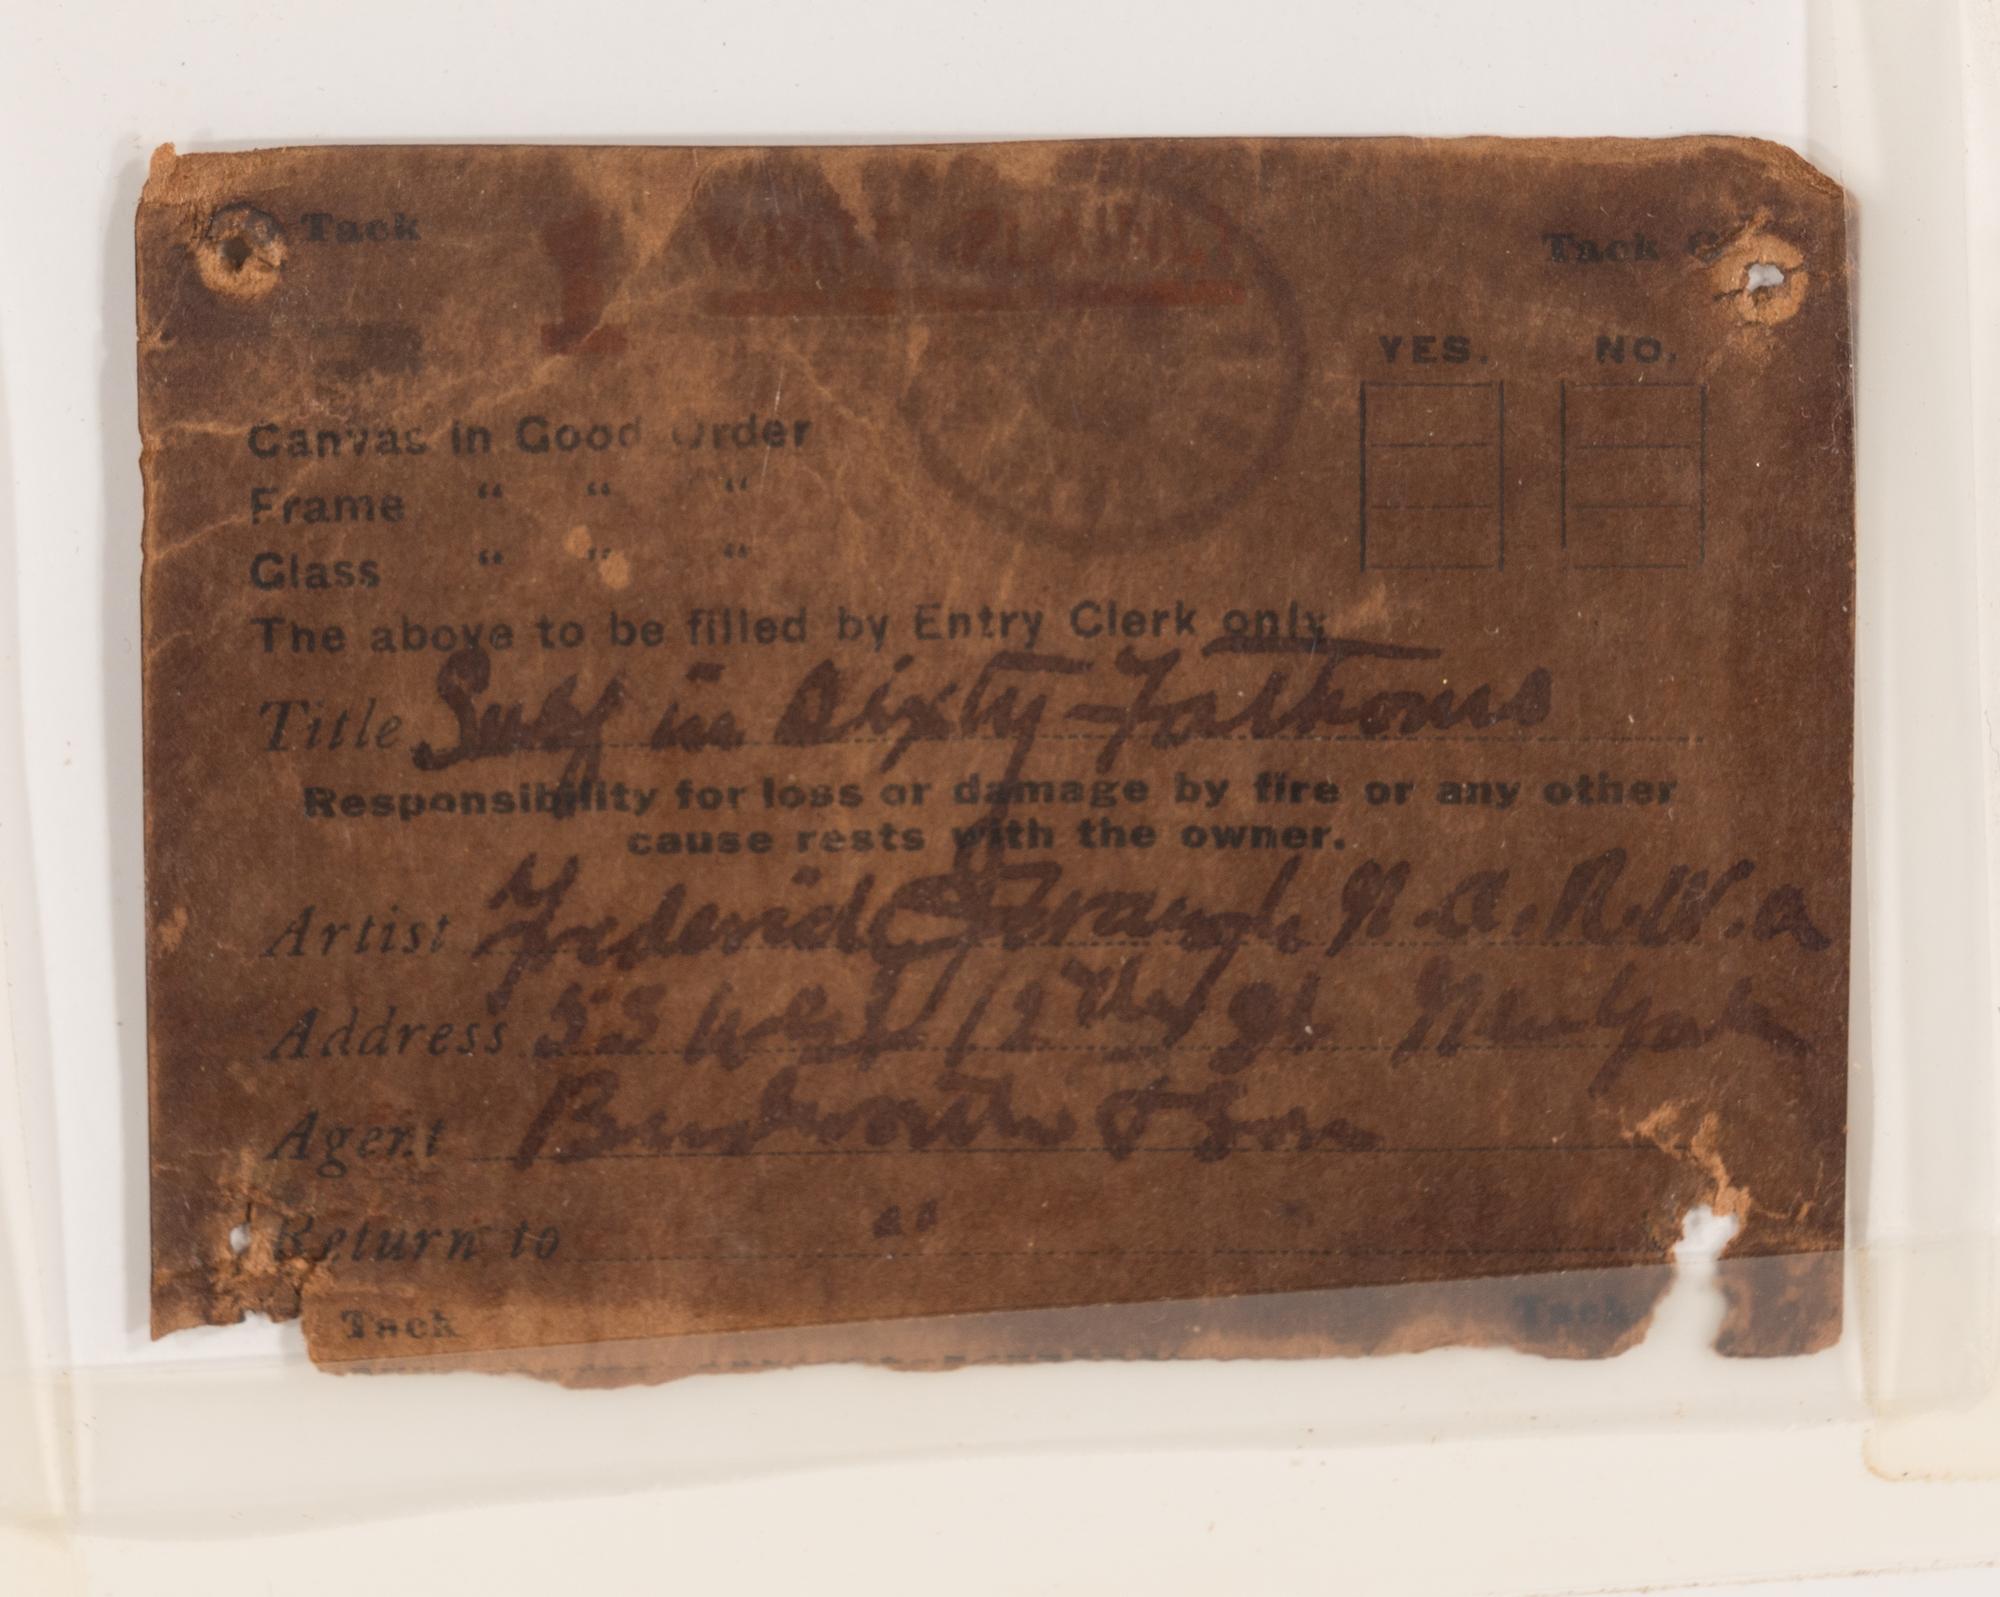 Tack Tack
YES. NO.
Canvas in Good Order
Frame “ “ “
Glass “ “ “
The above to be filled by Entry Clerk only
Title Surf in Sixty Fathoms
Responsibility for loss or damage by fire or any other
cause rests with the owner.
Artist Frederick J Waugh N.A. R.W.A
Address 55 West 12th St New York
Agent Budworth & Son
Return to " "
Tack Tack